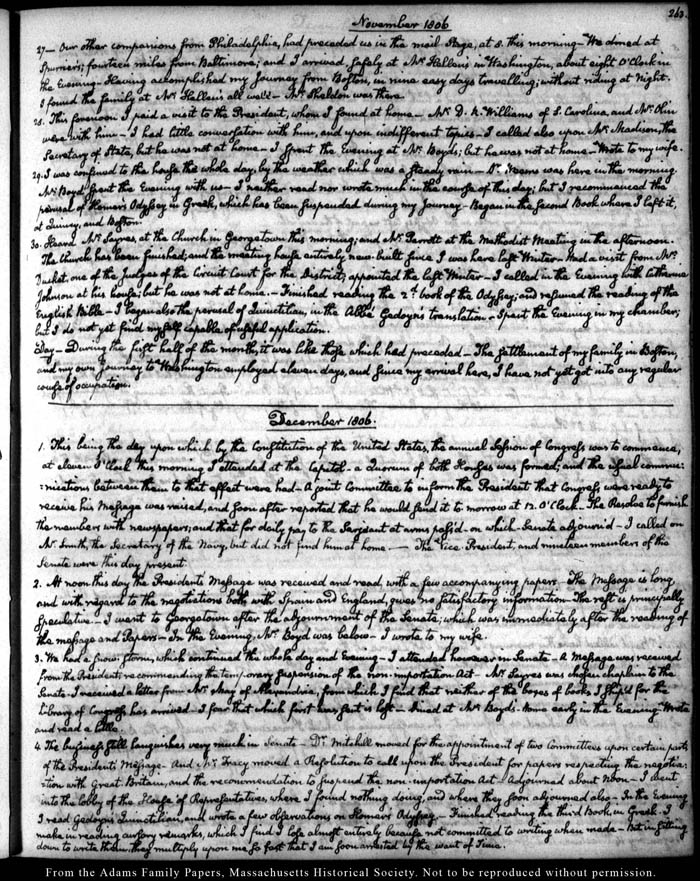 263
November 1806
27— Our other companions from Philadelphia, had preceded us in the mail Stage, at 8. this morning— We dined at
Spurriers; fourteen miles from Baltimore; and I arrived, safely at Mr Hellen's in Washington, about eight O'Clock in
the Evening— Having accomplished my Journey from Boston, in nine easy days travelling; without riding at Night.
I found the family at Mr Hellen's all well— Mr Sheldon was there.
28. This forenoon I paid a visit to the President, whom I found at home— Mr D. R. Williams of S. Carolina, and Mr
were with him— I had little conversation with him, and upon indifferent topics— I called also upon Mr Madison, the
Secretary of State, but he was not at home— I spent the Evening at Mr Boyd's; but he was not at home— Wrote to my wife.
29. I was confined to the house the whole day, by the weather which was a steady rain— Dr was here in the morning
Mr Boyd spent the Evening with us— I neither read nor wrote much in the course of this day; but I recommenced the
perusal of Homer's Odyssey in Greek, which has been suspended during my Journey— Began in the Second Book where I left it,
at Quincy, and Boston.
30. Heard Mr Sayres, at the Church in Georgetown this morning; and Mr Parrott at the Methodist Meeting in the afternoon.
The Church has been finished; and the meeting house entirely new-built since I was here last Winter— Had a visit from Mr
Ducket one of the Judges of the Circuit Court for the District; appointed the last Winter— I called in the Evening with Catherine
Johnson at his house; but he was not at home.— Finished reading the 2d. book of the Odyssey; and resumed the reading of the
English Bible— I began also the perusal of Quinctilian, in the Abbé Gedoyn's translation— I spent the Evening in my chamber;
but I do not yet find myself capable of useful application.
Day— During the first half of the month, it was like those which had preceded— The settlement of my family in Boston,
and my own Journey to Washington employed eleven days, and since my arrival here, I have not yet got into any regular
course of occupation.
December 1806.
1. This being the day upon which by the Constitution of the United States, the annual Session of Congress was to commence,
at eleven O'Clock this morning I attended at the Capitol— a Quorum of both Houses was formed; and the usual commu:
:nications between them to that effect were had— A joint Committee to inform the President that Congress were ready to
receive his Message was raised, and soon after reported that he would send it to morrow at 12. O'Clock— The Resolve to furnish
the members with newspapers; and that for daily pay to the Serjeant at arms pass'd— on which Senate adjourn'd— I called on
Mr Smith, the Secretary of the Navy, but did not find him at home.— The Vice President, and nineteen members of the
Senate were this day present
2. At noon this day the President's Message was received and read, with a few accompanying papers— The Message is long
and with regard to the negotiations both with Spain and England, gives no satisfactory information— The rest is principally
speculative— I went to Georgetown after the adjournment of the Senate; which was immediately after the reading of
the message and Papers— In the Evening, Mr Boyd was below— I wrote to my wife.
3. We had a snow-storm, which continued the whole day and Evening— I attended however in Senate— A Message was received
from the President, recommending the temporary suspension of the non-importation Act— Mr Sayres was chosen chaplain to the
Senate— I received a letter from Mr May of Alexandria, from which I find that neither of the boxes of books I shipp'd for the
Library of Congress has arrived— I fear that which first was, sent is lost— Dined at Mr Boyd's. Home early in the Evening— Wrote
and read a little.
4. The business still languishes very much in Senate— Dr Mitchill moved for the appointment of two Committees upon certain parts
of the President's Message— And Mr Tracy moved a Resolution to call upon the President for papers respecting the negotia:
:tion with Great Britain, and the recommendation to suspend the non-importation Act— Adjourned about Noon— I went
into the lobby of the House of Representatives, where I found nothing doing, and where they soon adjourned also— In the Evening
I read Gedoyn's Quinctilian, and wrote a few observations on Homer's Odyssey— Finished reading the third Book, in Greek. I
make in reading cursory remarks, which I find I lose almost entirely because not committed to writing when made— But in sitting
down to write them, they multiply upon me so fast that I am soon arrested by the want of Time.
From the Adams Family Papers, Massachusetts Historical Society. Not to be reproduced without permission.